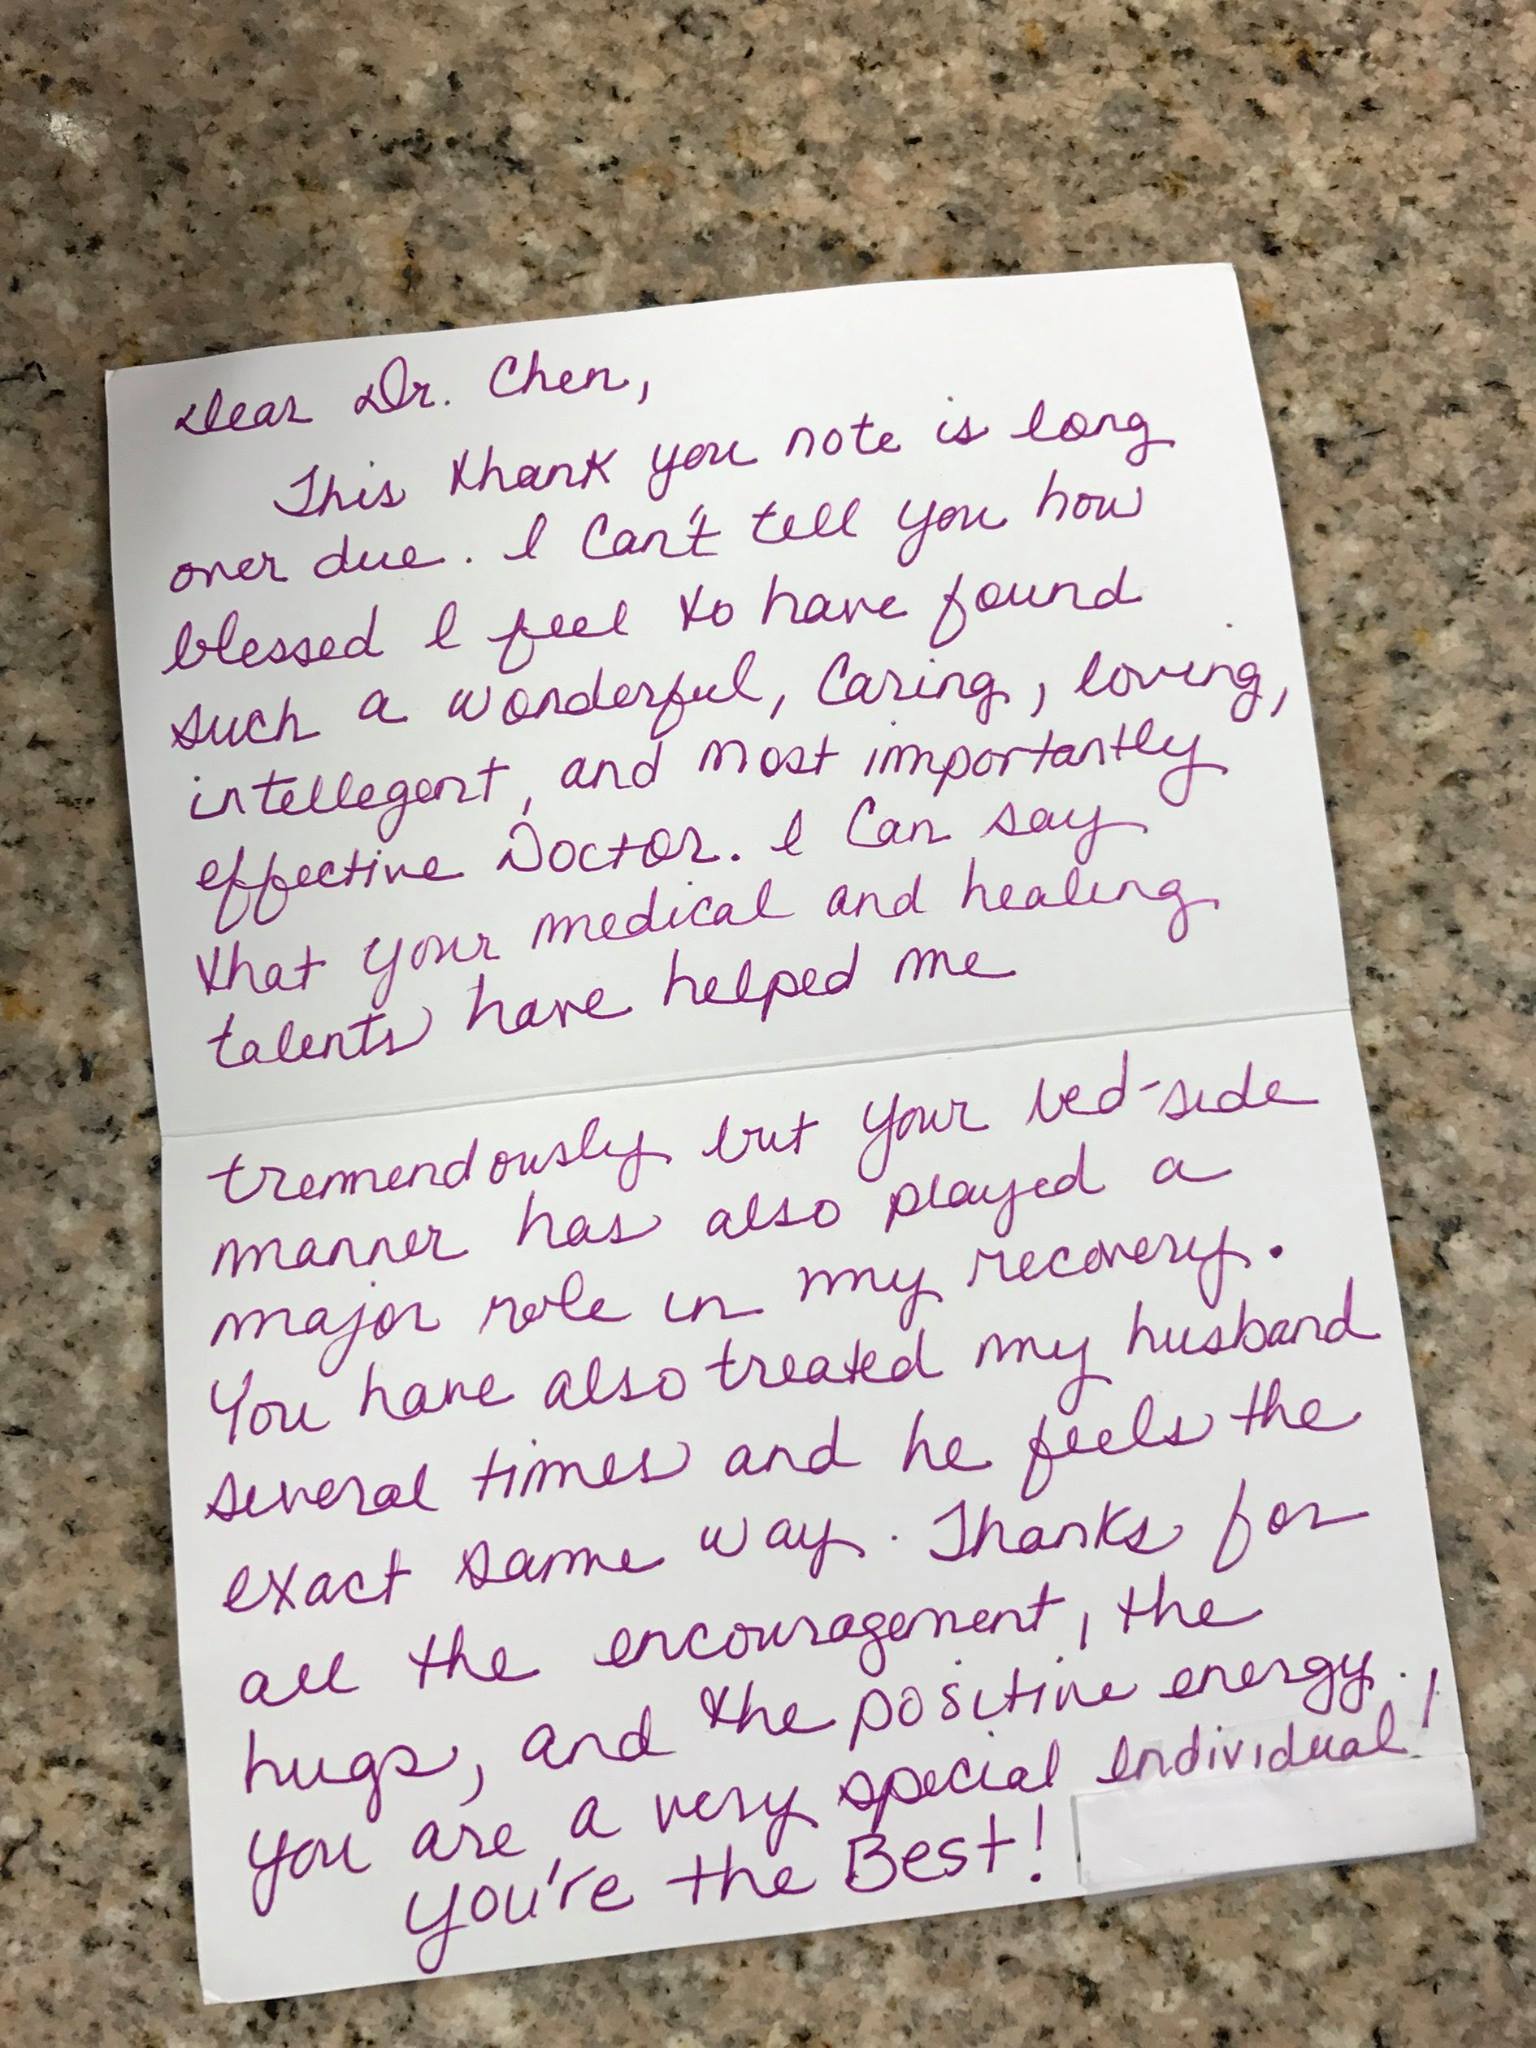 Dear Dr. Chen,
This thank you note is long
over due. I can't tell you how
blessed I feel to have found
such a wonderful, caring, loving,
intellegent, and most importantly
effective Doctor. I can say
that your medical and healing
talents have helped me
tremendously but your bed-side
manner has also played a
major role in my recovery.
You have also treated my husband
several times and he feels the
exact same way. Thanks for
all the encouragement, the
hugs, and the positive energy.
You are a very special individual!
You're the Best!